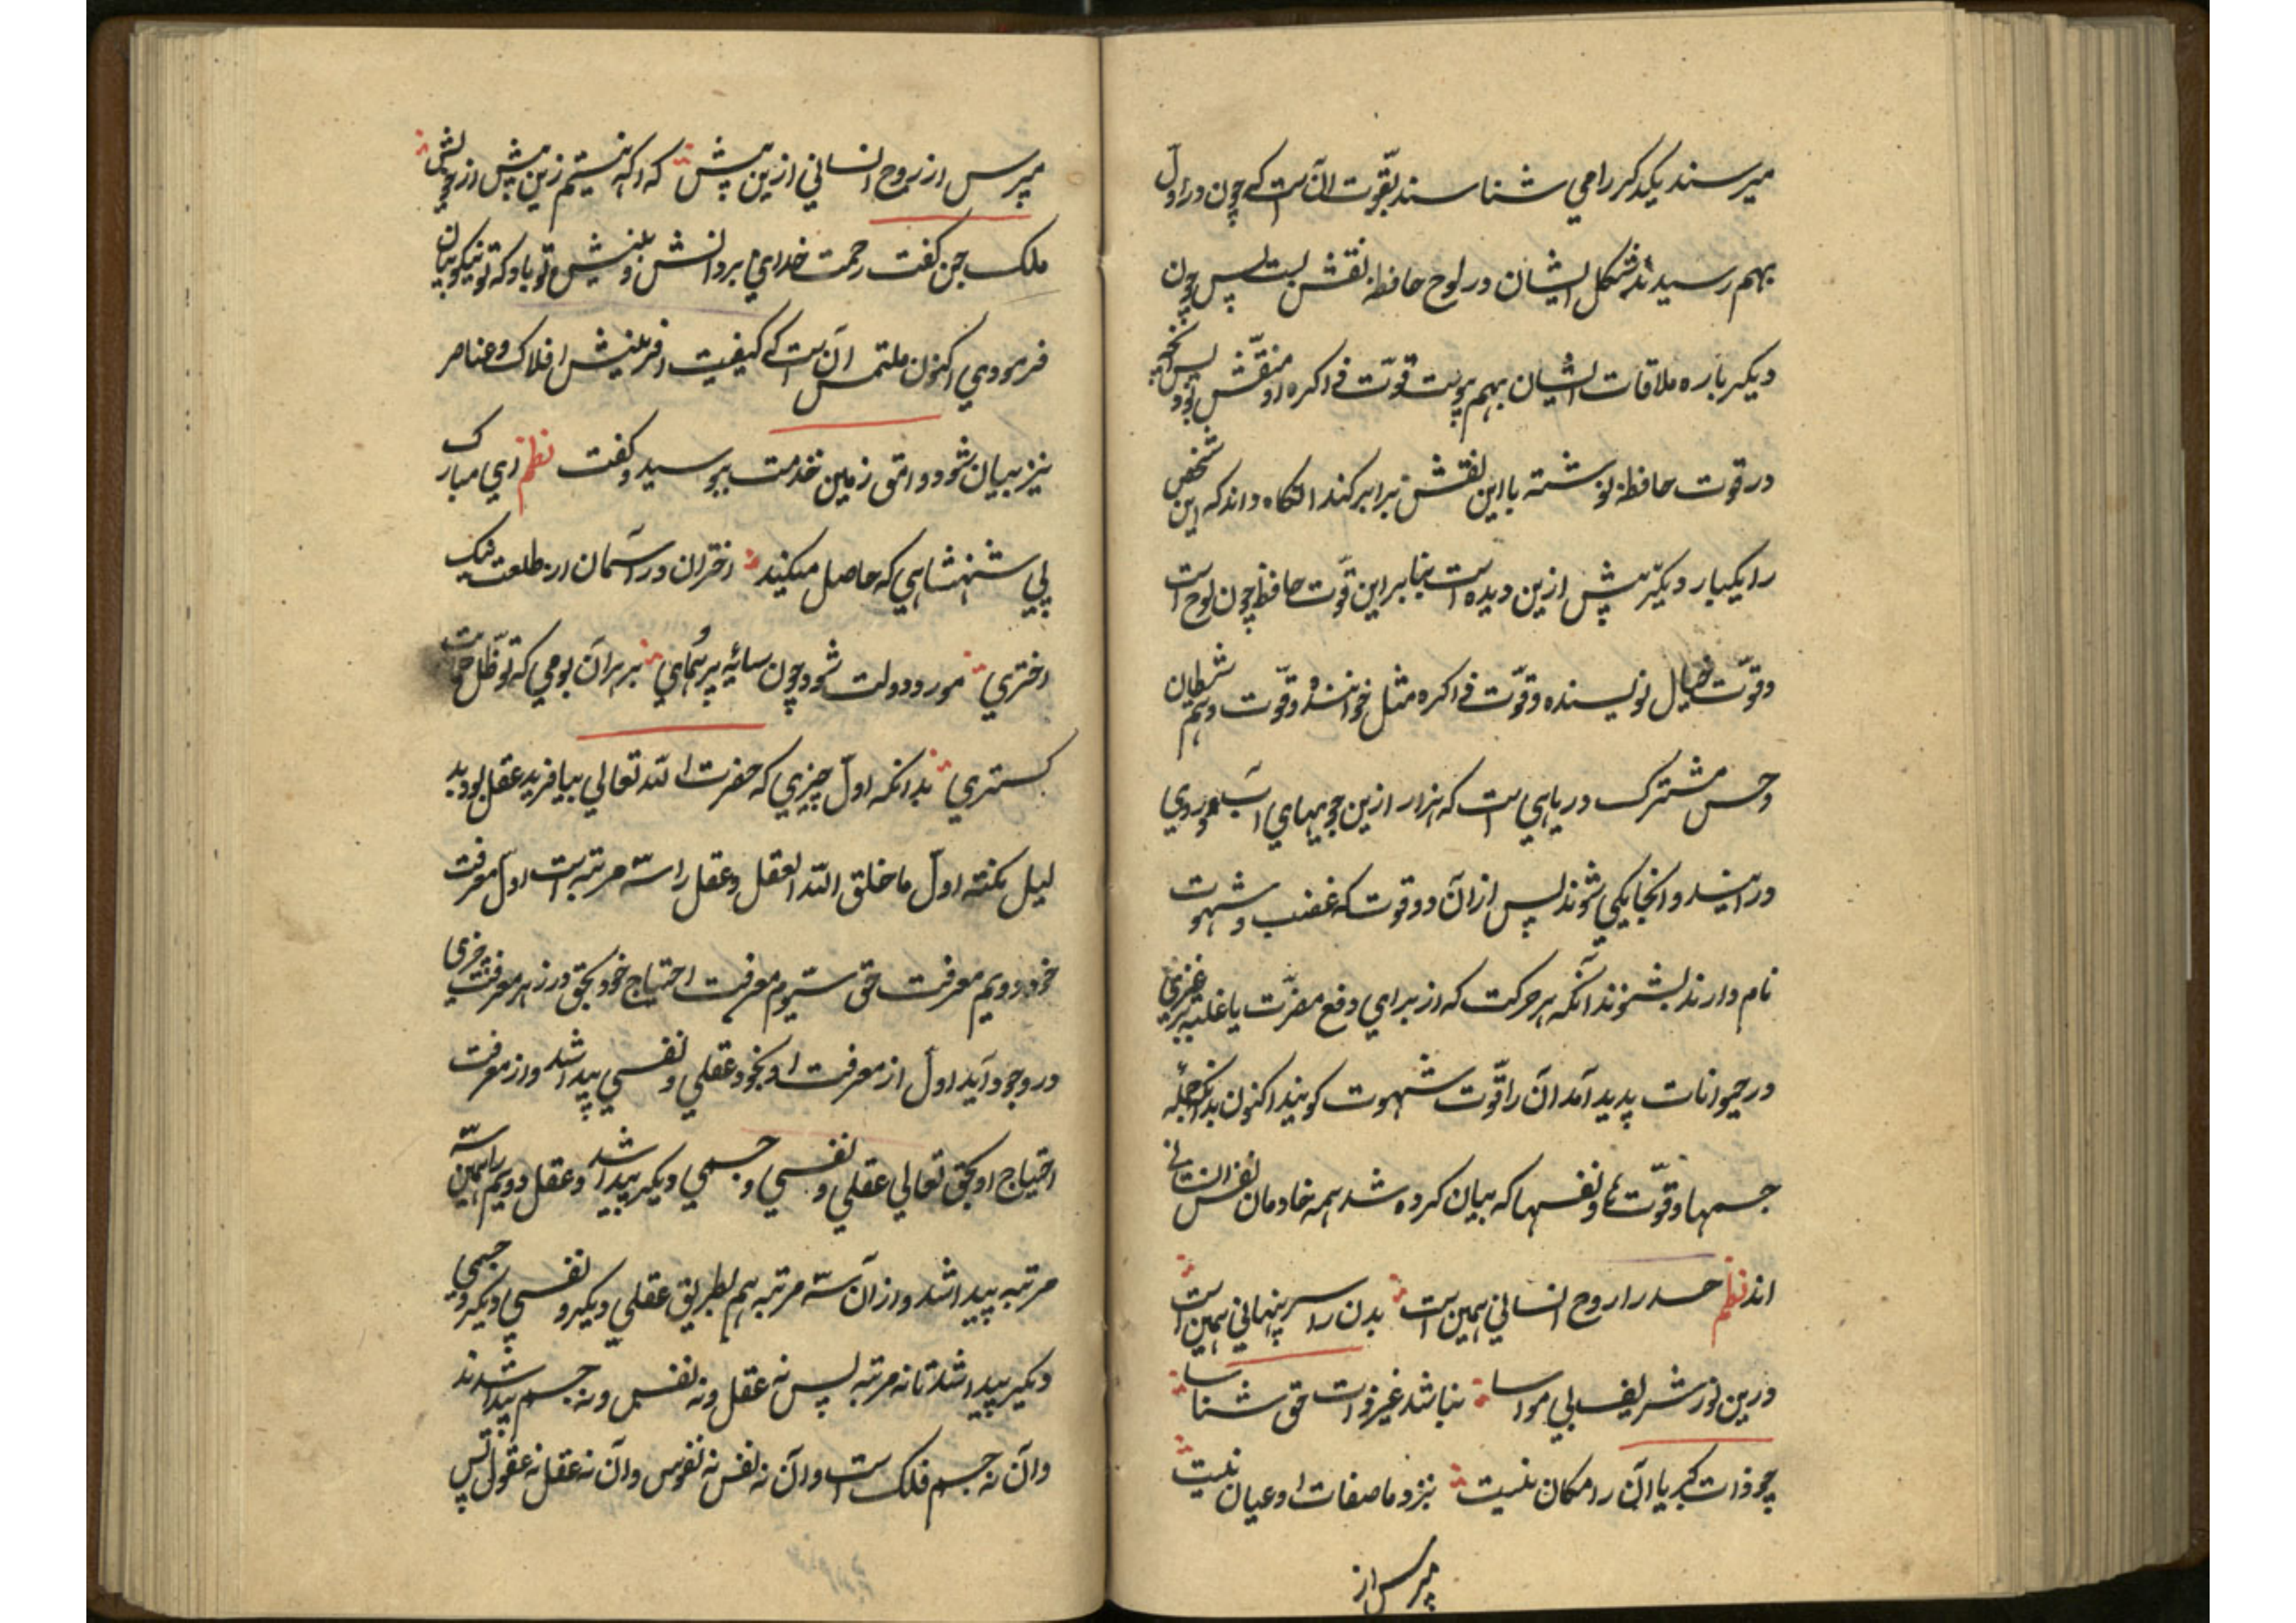 میرسند یکدکر را می شناسند بقوّت آن است که چون در اوّل
بهم رسیدند شکل ایشان در لوح حافظه نقش بست پس چون
دیکر باره ملاقات ایشان بهم پوست قوّت ذاکره او منقّش بود پس آنچه
در قوت حافظه نوشته با این نقش برابر کند انکاه داند که این شخص
را یکبار دیکر پیش ازین دیده است بنابراین قوّت حافظه چون لوح است
وقوّت خیال نویسنده وقوّت ذاکره مثل خواننده وقوّت وهم شیطان
وحس مشترک دریایی است که هزار ازین جویهای آب در وی
در آیند و انجا یکی شوند پس از آن دو قوت که غضب و شهوت
نام دارند بشنوند آنکه هر حرکت که از برای دفع مضرّت یا غلبه بر غیری
در حیوانات پدید آمد آن را قوّت شهوت کویند اکنون بدانکه جمله
جسمها وقوّت ها ونفسها که بیان کرده شد همه خادمان نفس انسانی
اند نظم جسد را روح انسانی همین است بدن را سر پنهانی همین است
درین نور شریف بی مواسا نباشد غیر ذات حق شناسا
چو ذات کبریا آن را مکان نیست بنزد ما صفات او عیان نیست
مپرس از
مپرس از روح انسانی ازین پیش که اکه نیستم زین پیش از خویش
ملک جن کفت رحمت خدای بر دانش و بینش تو باد که تو نیکو بیان
فرمودی اکنون ملتمس آن است که کیفیت افرینش افلاک و عناصر
نیز بیان شود وامق زمین خدمت ببوسید و کفت نظم ای مبارک
پی شهنشاهی که حاصل میکند اختران در آسمان از طلعت نیک
اختری مورد دولت شود چون سائه پر همای بر هر آن بومی که تو ظل حمایت
کستری بدانکه اوّل چیزی که حضرت الله تعالی بیافرید عقل بود بد
لیل نکته اوّل ما خلق الله العقل و عقل را سه مرتبه است اول معرفت
خود دویم معرفت حق سیّوم معرفت احتیاج خود بحق و از هر معرفت چیزی
در وجود آید اول از معرفت او بخود عقلی و نفسی پیدا شد و از معرفت
احتیاج او بحق تعالی عقلی و نفسی و جسمی دیکر پیدا شد و عقل دویم را همین سه
مرتبه پیدا شد و از آن سه مرتبه هم بطریق عقلی دیکر و نفسی دیکر و جسمی
دیکر پیدا شد تا نه مرتبه پس نه عقل و نه نفس و نه جسم پیدا شدند
و آن نه جسم فلک است و آن نه نفس نه نفوس و آن نه عقل نه عقول پس